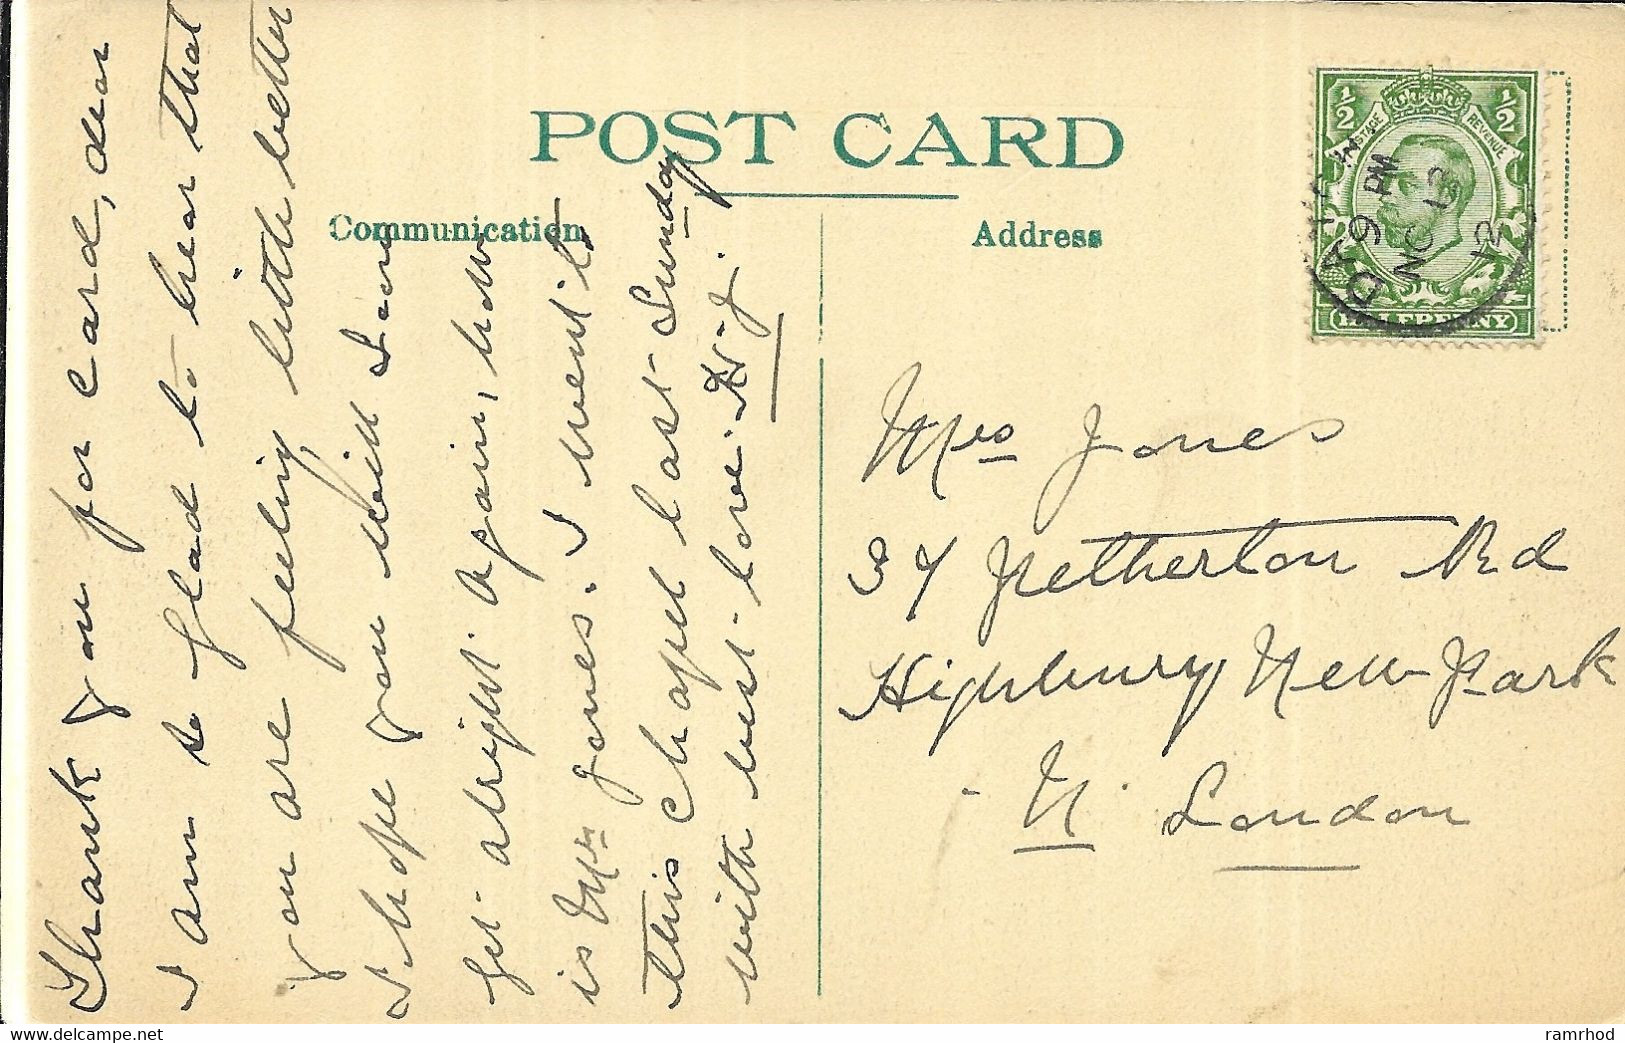 POST CARD
Communication
Address
Thank you for card, dear
I am so glad to hear that
you are feeling little better
I hope you will soon
get alright again, how
is Mr Jones. I went to
this Chapel last Sunday
with best love
Mrs Jones
Petherton Rd
Highbury New Park
N. London
1/2 1/2
POSTAGE REVENUE
HALFPENNY
9 PM
NO 13
12
www.delcampe.net
ramrhod